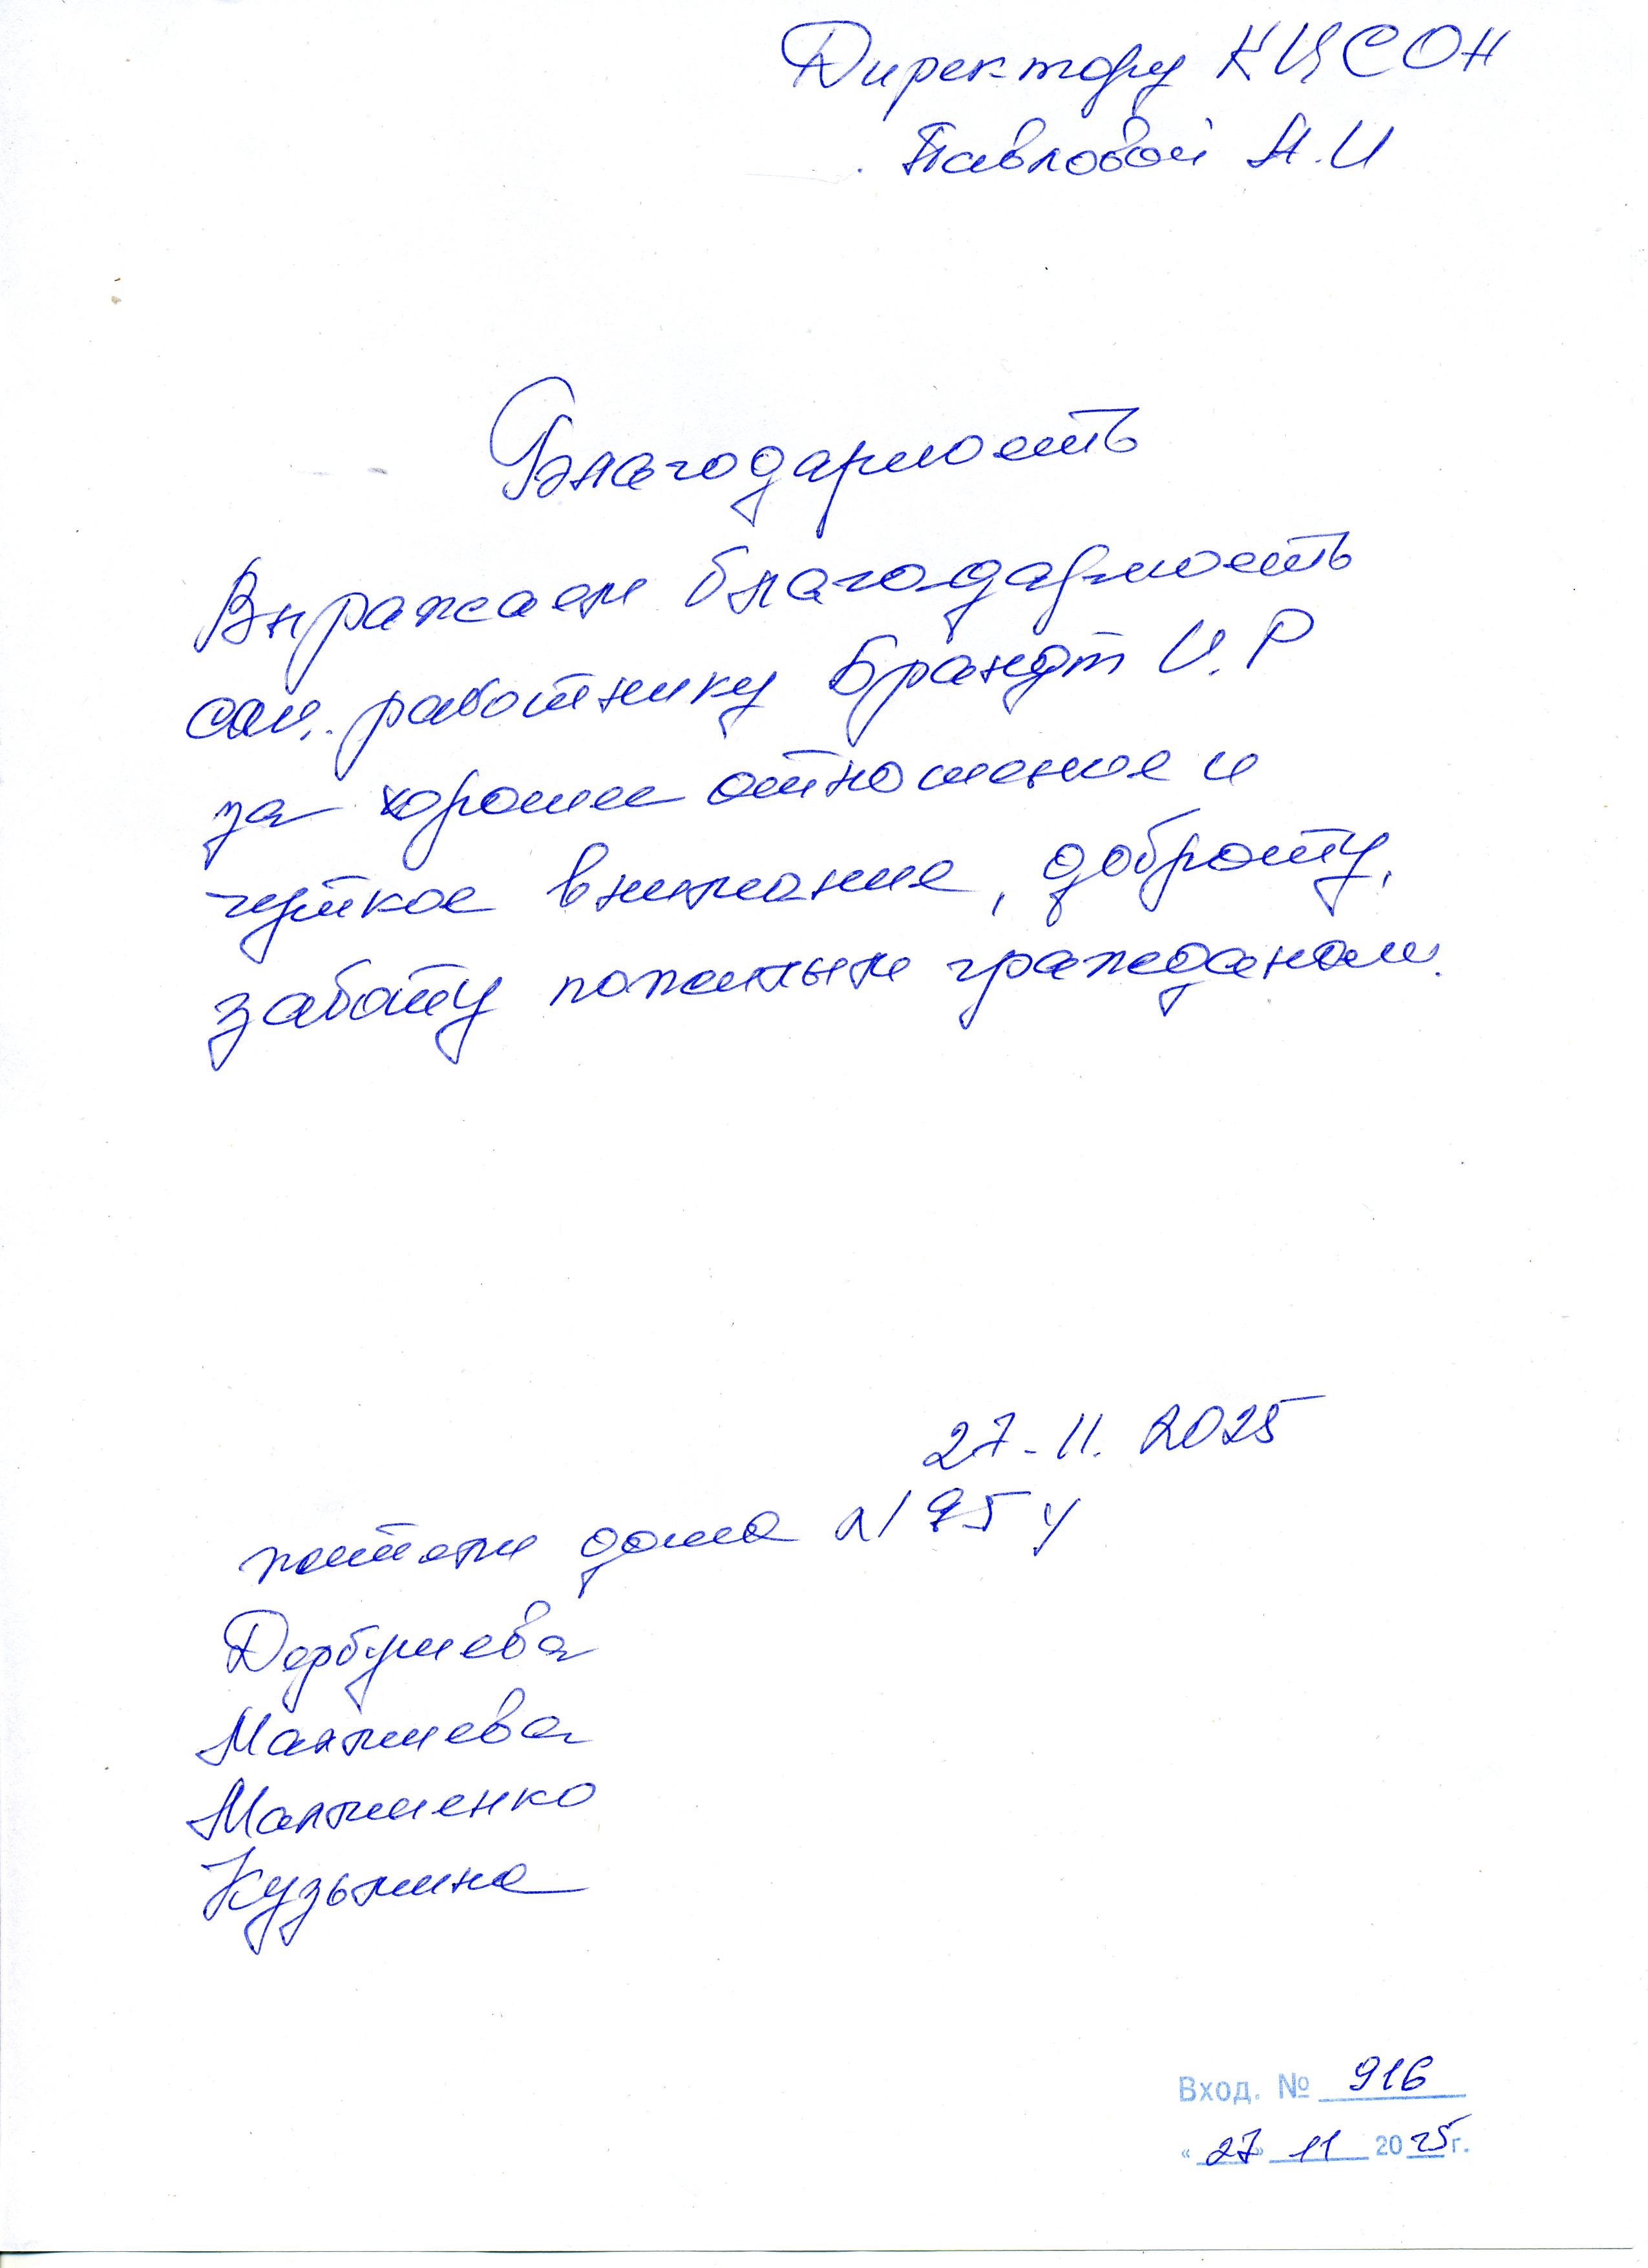 Директору КЦСОН
Павловой Н.И
Благодарность
Выражаем благодарность
соц. работнику Брандт И.Р
за хорошее отношение и
чуткое внимание, доброту,
заботу пожилым гражданам.
27-11.2025
жители дома
Дербушева
Малышева
Малышенко
Кузьмина
Вход. № 916
«27» 11 2025г.